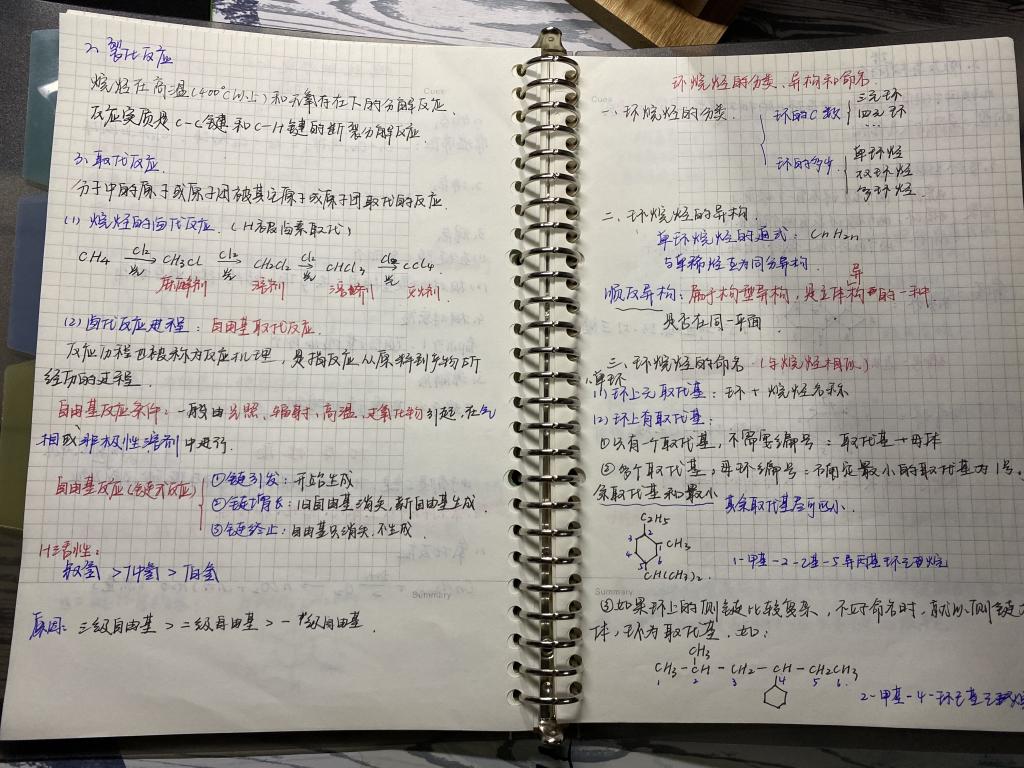 2、裂化反应
烷烃在高温(400℃以上)和无氧存在下的分解反应
反应实质是C-C键和C-H键的断裂分解反应
3、取代反应
分子中的原子或原子团被其它原子或原子团取代的反应
(1) 烷烃的卤代反应.(H被卤素取代)
CH4 Cl2 光 → CH3Cl Cl2 光 → CH2Cl2 Cl2 光 → CHCl3 Cl2 光 → CCl4
麻醉剂 溶剂 灭火剂
(2) 卤代反应过程:自由基取代反应.
反应历程也被称为反应机理,是指反应从原料到产物所
经历的过程.
自由基反应条件:一般由光照、辐射、高温、过氧化物引起,在气
相或非极性溶剂中进行.
自由基反应(链式反应)
①链引发:开始生成
②链增长:旧自由基消失,新自由基生成.
③链终止:自由基只消失,不生成.
H活性:
叔氢>仲氢>伯氢
Summary
原因:三级自由基>二级自由基>一级自由基.
环烷烃的分类、异构和命名
Cues
一、环烷烃的分类.
环的C数
三元环
四元环
...
环的多少
单环烃
双环烃
多环烃
二、环烷烃的异构.
单环烷烃的通式:CnH2n
与单稀烃互为同分异构.
顺反异构:属于构型异构,是立体构异的一种.
是否在同一平面.
三、环烷烃的命名.(与烷烃相似)
1.单环
(1) 环上无取代基:环+烷烃名称
(2) 环上有取代基:
①只有一个取代基,不需要编号:取代基+母体
②多个取代基,母环编号:确定最小的取代基为1号.
余取代基和最小 其余取代基尽可能小.
C2H5
CH3
CH(CH3)2.
1-甲基-2-乙基-5-异丙基环己烷
Summary
③如果环上的侧链比较复杂,不好命名时,就以侧链
体,环为取代基.如:
CH3
CH3-CH-CH2-CH-CH2CH3
1 2 3 4 5 6
2-甲基-4-环己基己烷